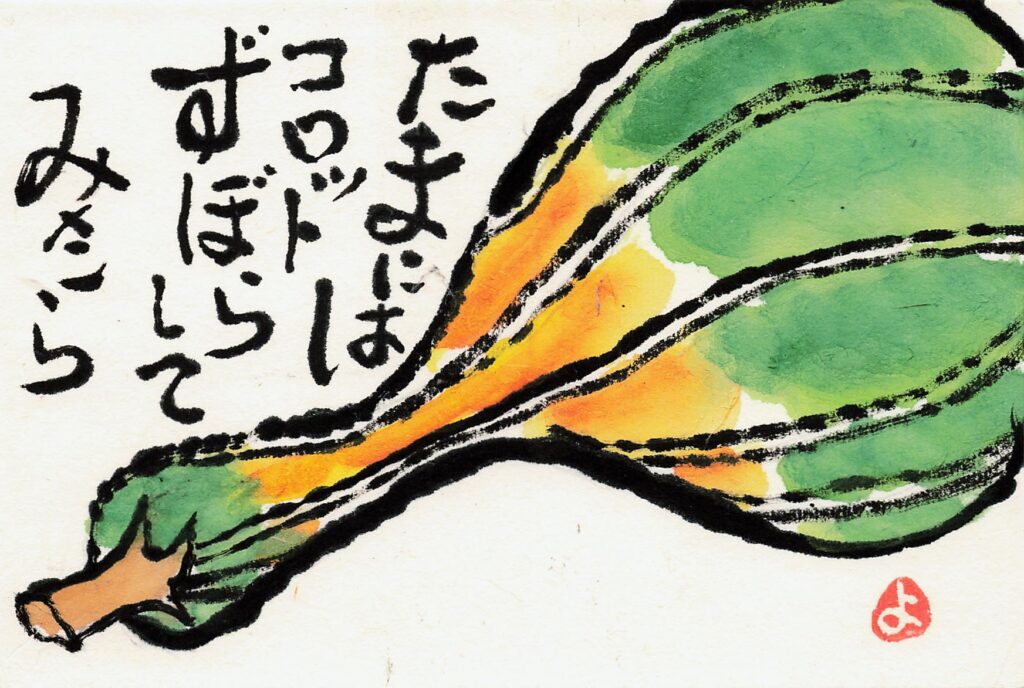 たまには
コロットし
ずぼらして
みたら
よ